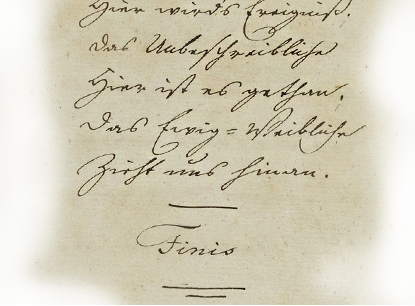 Hier wirds Ereigniß.
Das Unbeschreibliche
Hier ist es gethan.
Das Ewig=Weibliche
Zieht uns hinan.
Finis